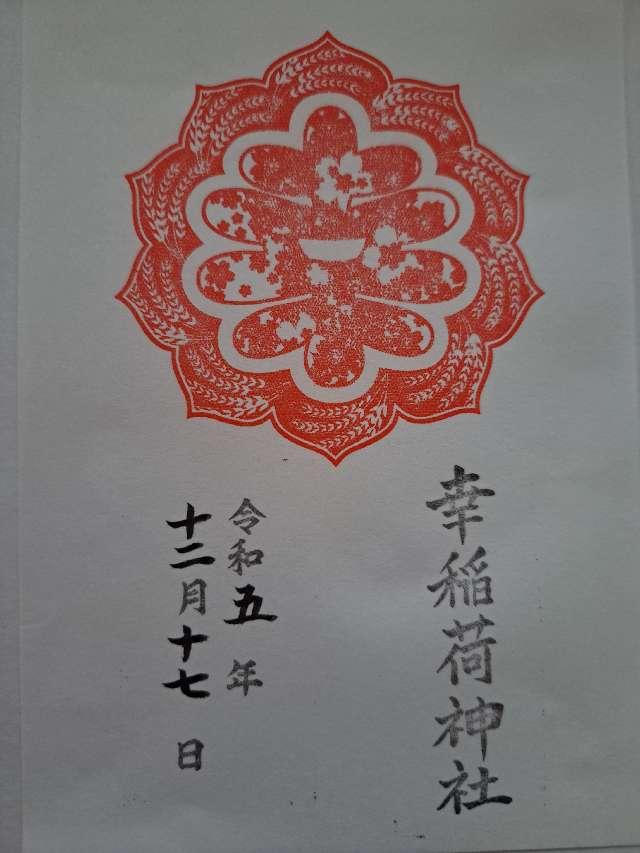 幸稲荷神社
令和五年
十二月十七日